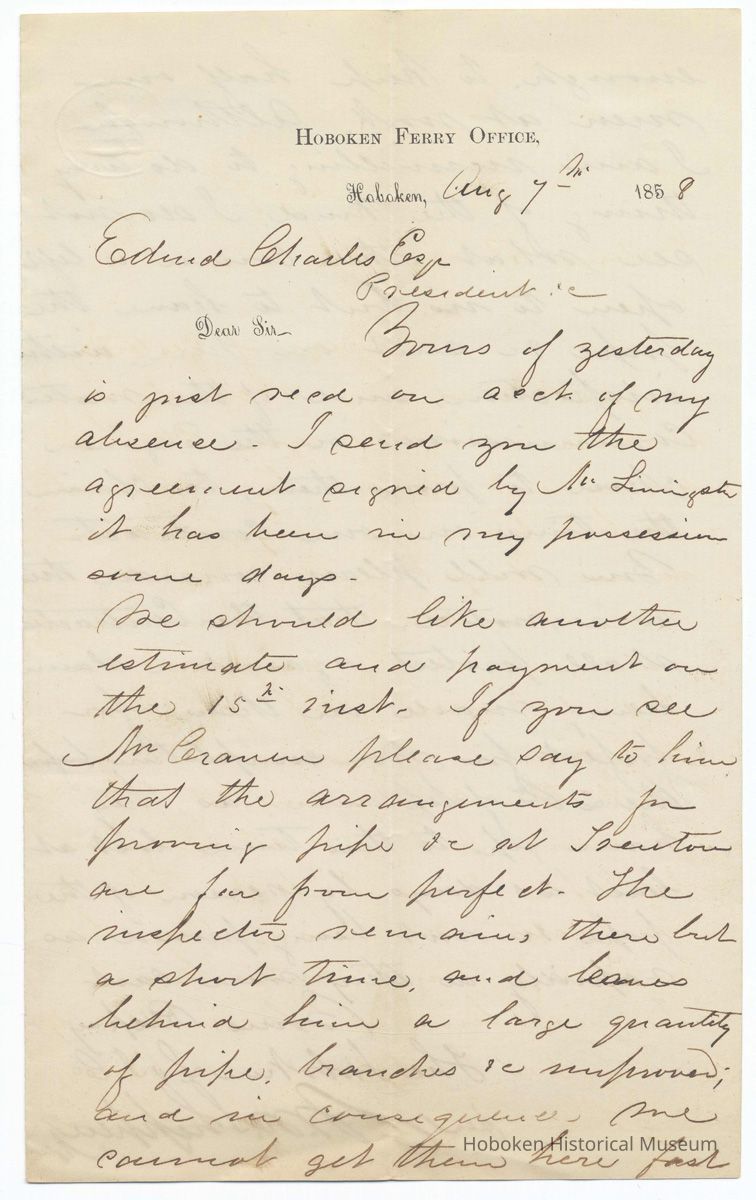 HOBOKEN FERRY OFFICE,
Hoboken, Aug 7th 1858
Edmd Charles Esq
President &c
Dear Sir Yours of yesterday
is just recd on acct. of my
absence. I send you the
agreement signed by Mr Livingston
it has been in my possession
some days.
We should like another
estimate and payment on
the 15th inst. If you see
Mr Craven please say to him
that the arrangements for
proving pipe &c at Trenton
are far from perfect. The
inspector remains there but
a short time, and leaves
behind him a large quantity
of pipe, branches &c unproved;
and in consequence we
cannot get them here fast
Hoboken Historical Museum